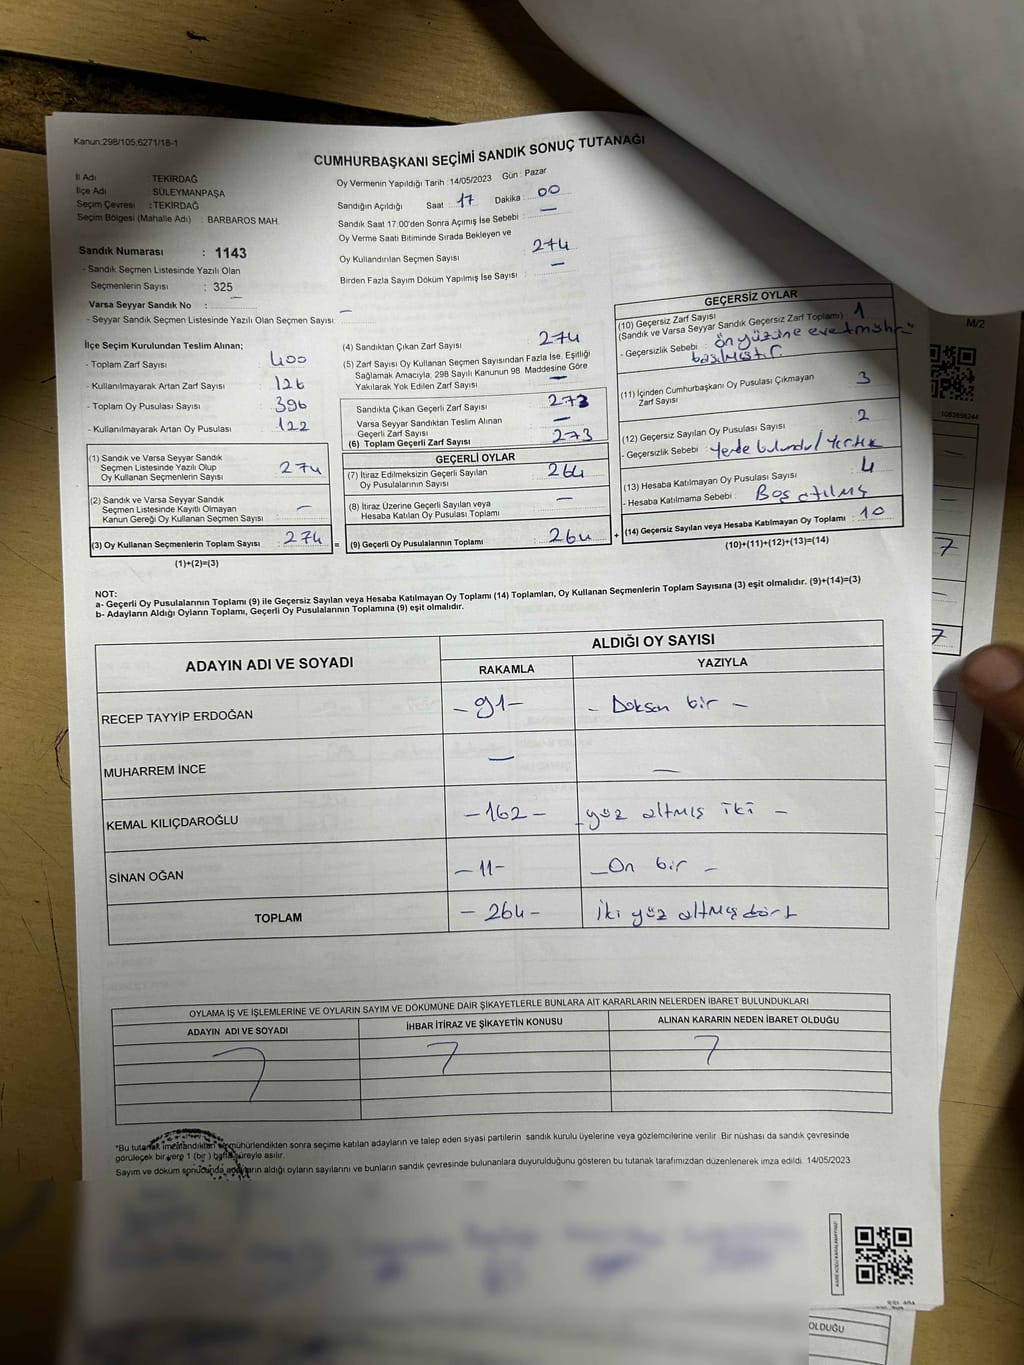 Kanun:298/105;6271/18-1
CUMHURBAŞKANI SEÇİMİ SANDIK SONUÇ TUTANAĞI
İl Adı : TEKİRDAĞ
İlçe Adı : SÜLEYMANPAŞA
Seçim Çevresi : TEKİRDAĞ
Seçim Bölgesi (Mahalle Adı) : BARBAROS MAH.
Sandık Numarası : 1143
- Sandık Seçmen Listesinde Yazılı Olan
Seçmenlerin Sayısı : 325
Varsa Seyyar Sandık No : —
- Seyyar Sandık Seçmen Listesinde Yazılı Olan Seçmen Sayısı: —
Oy Vermenin Yapıldığı Tarih : 14/05/2023 Gün : Pazar
Sandığın Açıldığı Saat : 17 Dakika : 00
Sandık Saat 17:00'den Sonra Açımış İse Sebebi : —
Oy Verme Saati Bitiminde Sırada Bekleyen ve
Oy Kullandırılan Seçmen Sayısı : 274
Birden Fazla Sayım Döküm Yapılmış İse Sayısı : —
İlçe Seçim Kurulundan Teslim Alınan;
- Toplam Zarf Sayısı : 400
- Kullanılmayarak Artan Zarf Sayısı : 126
- Toplam Oy Pusulası Sayısı : 396
- Kullanılmayarak Artan Oy Pusulası : 122
(1) Sandık ve Varsa Seyyar Sandık
Seçmen Listesinde Yazılı Olup
Oy Kullanan Seçmenlerin Sayısı : 274
(2) Sandık ve Varsa Seyyar Sandık
Seçmen Listesinde Kayıtlı Olmayan
Kanun Gereği Oy Kullanan Seçmen Sayısı : —
(3) Oy Kullanan Seçmenlerin Toplam Sayısı : 274 =
(1)+(2)=(3)
(4) Sandıktan Çıkan Zarf Sayısı : 274
(5) Zarf Sayısı Oy Kullanan Seçmen Sayısından Fazla İse, Eşitliği
Sağlamak Amacıyla, 298 Sayılı Kanunun 98. Maddesine Göre
Yakılarak Yok Edilen Zarf Sayısı : —
Sandıkta Çıkan Geçerli Zarf Sayısı : 273
Varsa Seyyar Sandıktan Teslim Alınan
Geçerli Zarf Sayısı : —
(6) Toplam Geçerli Zarf Sayısı : 273
GEÇERLİ OYLAR
(7) İtiraz Edilmeksizin Geçerli Sayılan
Oy Pusulalarının Sayısı : 264
(8) İtiraz Üzerine Geçerli Sayılan veya
Hesaba Katılan Oy Pusulası Toplamı : —
(9) Geçerli Oy Pusulalarının Toplamı : 264 +
GEÇERSİZ OYLAR
(10) Geçersiz Zarf Sayısı : 1
(Sandık ve Varsa Seyyar Sandık Geçersiz Zarf Toplamı)
- Geçersizlik Sebebi : ön yüzüne evet mührü
basılmıştır
(11) İçinden Cumhurbaşkanı Oy Pusulası Çıkmayan
Zarf Sayısı : 3
(12) Geçersiz Sayılan Oy Pusulası Sayısı : 2
- Geçersizlik Sebebi : Yerde bulundu / Yırtık
(13) Hesaba Katılmayan Oy Pusulası Sayısı : 4
- Hesaba Katılmama Sebebi : Boş atılmış
(14) Geçersiz Sayılan veya Hesaba Katılmayan Oy Toplamı : 10
(10)+(11)+(12)+(13)=(14)
NOT:
a- Geçerli Oy Pusulalarının Toplamı (9) ile Geçersiz Sayılan veya Hesaba Katılmayan Oy Toplamı (14) Toplamları, Oy Kullanan Seçmenlerin Toplam Sayısına (3) eşit olmalıdır. (9)+(14)=(3)
b- Adayların Aldığı Oyların Toplamı, Geçerli Oy Pusulalarının Toplamına (9) eşit olmalıdır.
ADAYIN ADI VE SOYADI
ALDIĞI OY SAYISI
RAKAMLA YAZIYLA
RECEP TAYYİP ERDOĞAN – 91 – – Doksan bir –
MUHARREM İNCE — —
KEMAL KILIÇDAROĞLU – 162 – – yüz altmış iki –
SİNAN OĞAN – 11 – – On bir –
TOPLAM – 264 – iki yüz altmış dört
OYLAMA İŞ VE İŞLEMLERİNE VE OYLARIN SAYIM VE DÖKÜMÜNE DAİR ŞİKAYETLERLE BUNLARA AİT KARARLARIN NELERDEN İBARET BULUNDUKLARI
ADAYIN ADI VE SOYADI İHBAR İTİRAZ VE ŞİKAYETİN KONUSU ALINAN KARARIN NEDEN İBARET OLDUĞU
*Bu tutanak imzalandıktan ve mühürlendikten sonra seçime katılan adayların ve talep eden siyasi partilerin sandık kurulu üyelerine veya gözlemcilerine verilir. Bir nüshası da sandık çevresinde
görülecek bir yere 1 (bir) hafta süreyle asılır.
Sayım ve döküm sonucunda adayların aldığı oyların sayılarını ve bunların sandık çevresinde bulunanlara duyurulduğunu gösteren bu tutanak tarafımızdan düzenlenerek imza edildi. 14/05/2023
M/2
7
7
OLDUĞU